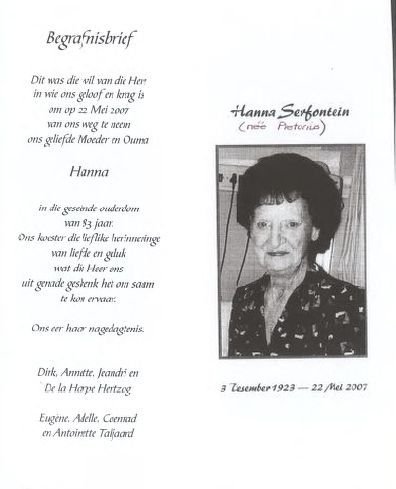 Begrafnisbrief
Dit was die wil van die Heer
in wie ons geloof en krag is
om op 22 Mei 2007
van ons weg te neem
ons geliefde Moeder en Ouma
Hanna
in die geseënde ouderdom
van 83 jaar.
Ons koester die lieflike herinneringe
van liefde en geluk
wat die Heer ons
uit genade geskenk het om saam
te kon ervaar.
Ons eer haar nagedagtenis.
Dirk, Annette, Jeandré en
De la Harpe Hertzog
Eugène, Adelle, Coenrad
en Antoinette Taljaard
Hanna Serfontein
(née Pretorius)
3 Desember 1923 — 22 Mei 2007